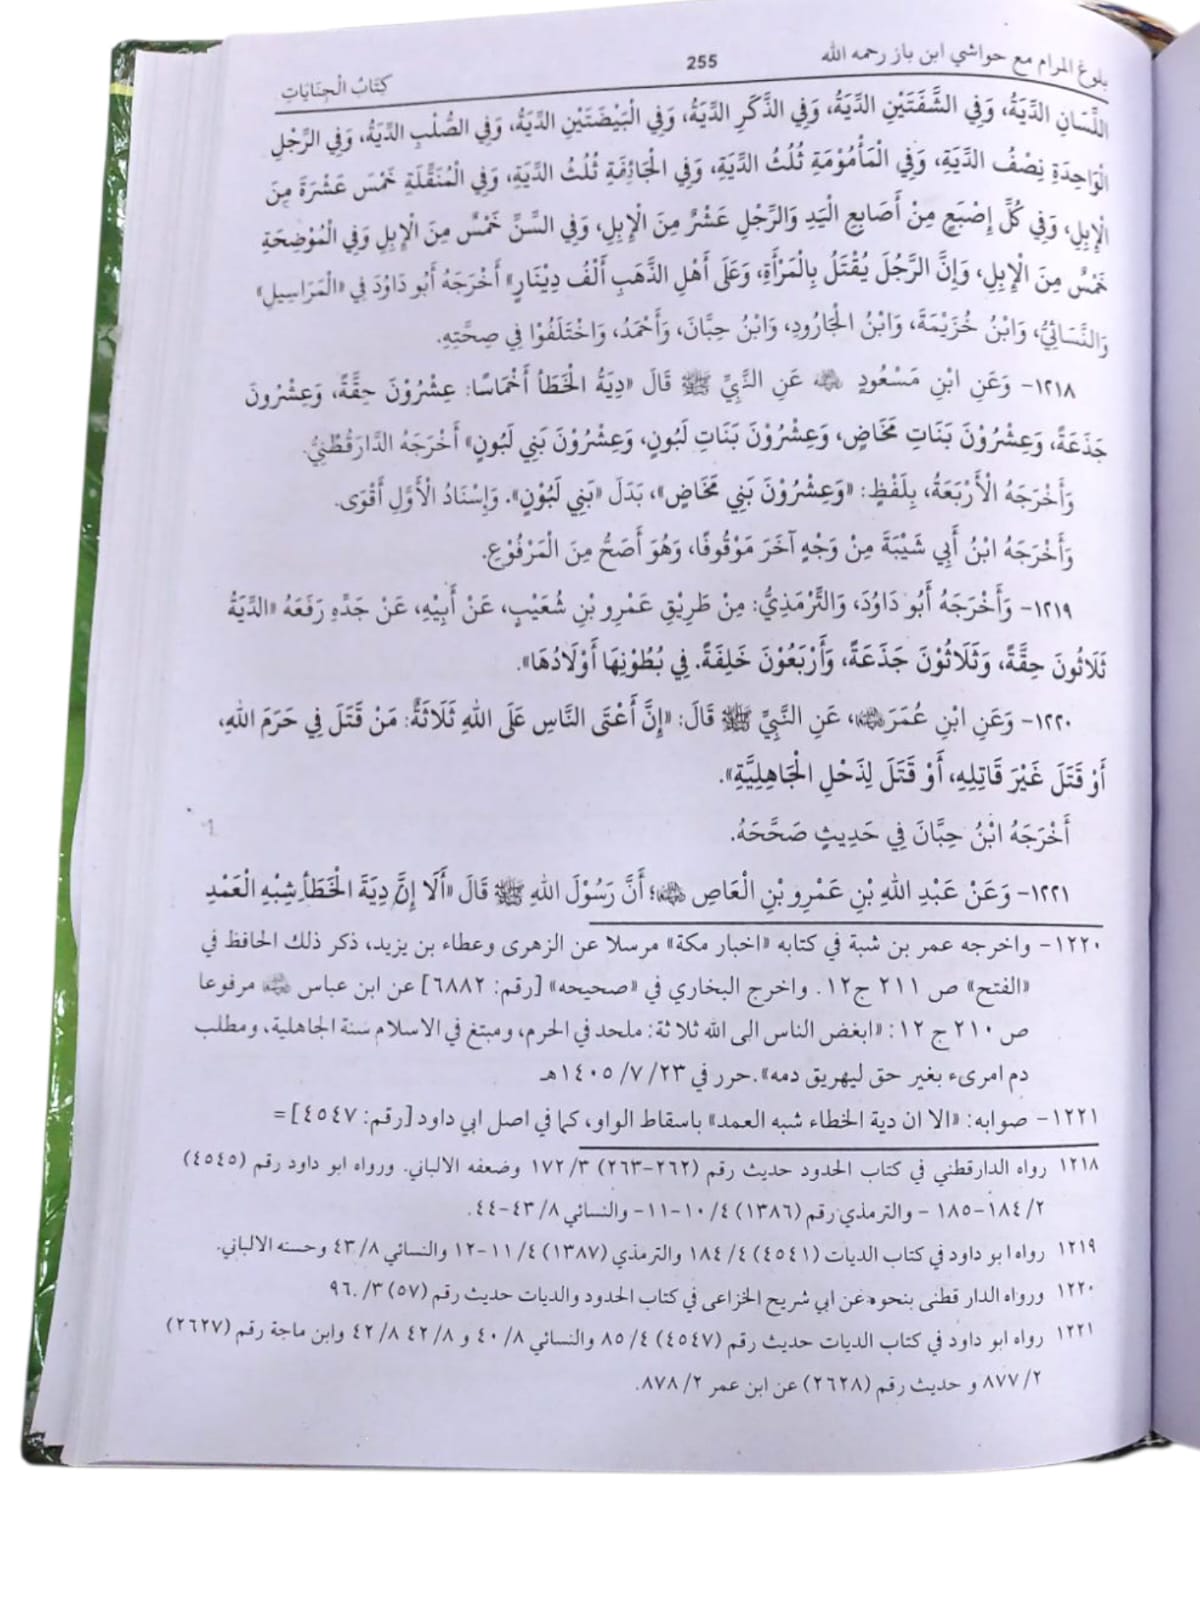 بلوغ المرام مع حواشي ابن باز رحمه الله 255 كِتَابُ الْجِنَايَاتِ
اللِّسَانِ الدِّيَةُ، وَفِي الشَّفَتَيْنِ الدِّيَةُ، وَفِي الذَّكَرِ الدِّيَةُ، وَفِي الْبَيْضَتَيْنِ الدِّيَةُ، وَفِي الصُّلْبِ الدِّيَةُ، وَفِي الرِّجْلِ
الْوَاحِدَةِ نِصْفُ الدِّيَةِ، وَفِي الْمَأْمُوْمَةِ ثُلُثُ الدِّيَةِ، وَفِي الْجَائِفَةِ ثُلُثُ الدِّيَةِ، وَفِي الْمُنَقِّلَةِ خَمْسَ عَشْرَةَ مِنَ
الْإِبِلِ، وَفِي كُلِّ إِصْبَعٍ مِنْ أَصَابِعِ الْيَدِ وَالرِّجْلِ عَشْرٌ مِنَ الْإِبِلِ، وَفِي السِّنِّ خَمْسٌ مِنَ الْإِبِلِ وَفِي الْمُوْضِحَةِ
خَمْسٌ مِنَ الْإِبِلِ، وَإِنَّ الرَّجُلَ يُقْتَلُ بِالْمَرْأَةِ، وَعَلَى أَهْلِ الذَّهَبِ أَلْفُ دِيْنَارٍ» أَخْرَجَهُ أَبُو دَاوُدَ فِي «الْمَرَاسِيلِ»
وَالنَّسَائِيُّ، وَابْنُ خُزَيْمَةَ، وَابْنُ الْجَارُودِ، وَابْنُ حِبَّانَ، وَأَحْمَدُ، وَاخْتَلَفُوْا فِي صِحَّتِهِ.
١٢١٨- وَعَنِ ابْنِ مَسْعُودٍ ﷜ عَنِ النَّبِيِّ ﷺ قَالَ «دِيَةُ الْخَطَأِ أَخْمَاسًا: عِشْرُوْنَ حِقَّةً، وَعِشْرُوْنَ
جَذَعَةً، وَعِشْرُوْنَ بَنَاتِ مَخَاضٍ، وَعِشْرُوْنَ بَنَاتِ لَبُونٍ، وَعِشْرُوْنَ بَنِي لَبُونٍ» أَخْرَجَهُ الدَّارَقُطْنِيُّ.
وَأَخْرَجَهُ الْأَرْبَعَةُ، بِلَفْظٍ: «وَعِشْرُوْنَ بَنِي مَخَاضٍ»، بَدَلَ «بَنِي لَبُوْنٍ». وَإِسْنَادُ الْأَوَّلِ أَقْوَى.
وَأَخْرَجَهُ ابْنُ أَبِي شَيْبَةَ مِنْ وَجْهٍ آخَرَ مَوْقُوفًا، وَهُوَ أَصَحُّ مِنَ الْمَرْفُوْعِ.
١٢١٩- وَأَخْرَجَهُ أَبُو دَاوُدَ، وَالتِّرْمَذِيُّ: مِنْ طَرِيْقِ عَمْرِو بْنِ شُعَيْبٍ، عَنْ أَبِيْهِ، عَنْ جَدِّهِ رَفَعَهُ «الدِّيَةُ
ثَلَاثُونَ حِقَّةً، وَثَلَاثُوْنَ جَذَعَةً، وَأَرْبَعُوْنَ خَلِفَةً. فِي بُطُوْنِهَا أَوْلَادُهَا».
١٢٢٠- وَعَنِ ابْنِ عُمَرَ ﷠، عَنِ النَّبِيِّ ﷺ قَالَ: «إِنَّ أَعْتَى النَّاسِ عَلَى اللهِ ثَلَاثَةٌ: مَنْ قَتَلَ فِي حَرَمَ اللهِ،
أَوْ قَتَلَ غَيْرَ قَاتِلِهِ، أَوْ قَتَلَ لِذَحْلِ الْجَاهِلِيَّةِ».
أَخْرَجَهُ ابْنُ حِبَّانَ فِي حَدِيْثٍ صَحَّحَهُ.
١٢٢١- وَعَنْ عَبْدِ اللهِ بْنِ عَمْرِو بْنِ الْعَاصِ ﷠؛ أَنَّ رَسُوْلَ اللهِ ﷺ قَالَ «أَلَا إِنَّ دِيَةَ الْخَطَأِ شِبْهِ الْعَمْدِ
١٢٢٠- واخرجه عمر بن شبة في كتابه «اخبار مكة» مرسلا عن الزهرى وعطاء بن يزيد، ذكر ذلك الحافظ في
«الفتح» ص ٢١١ ج١٢. واخرج البخاري في «صحيحه» [رقم: ٦٨٨٢] عن ابن عباس ﷠ مرفوعا
ص ٢١٠ ج ١٢: «ابغض الناس الى الله ثلاثة: ملحد في الحرم، ومبتغ في الاسلام سنة الجاهلية، ومطلب
دم امرىء بغير حق ليهريق دمه». حرر في ٢٣/ ٧/ ١٤٠٥هـ
١٢٢١- صوابه: «الا ان دية الخطاء شبه العمد» باسقاط الواو، كما في اصل ابي داود [رقم: ٤٥٤٧] =
١٢١٨ رواه الدارقطني في كتاب الحدود حديث رقم (٢٦٢-٢٦٣) ٣/ ١٧٢ وضعفه الالباني. ورواه ابو داود رقم (٤٥٤٥)
٢/ ١٨٤-١٨٥ - والترمذي رقم (١٣٨٦) ٤/ ١٠-١١- والنسائي ٨/ ٤٣-٤٤.
١٢١٩ رواه ابو داود في كتاب الديات (٤٥٤١) ٤/ ١٨٤ والترمذي (١٣٨٧) ٤/ ١١-١٢ والنسائي ٨/ ٤٣ وحسنه الالباني.
١٢٢٠ ورواه الدار قطنى بنحوه عن ابي شريح الخزاعى في كتاب الحدود والديات حديث رقم (٥٧) ٣/ ٩٦.
١٢٢١ رواه ابو داود في كتاب الديات حديث رقم (٤٥٤٧) ٤/ ٨٥ والنسائي ٨/ ٤٠ و ٨/ ٤٢ ٨/ ٤٢ وابن ماجة رقم (٢٦٢٧)
٢/ ٨٧٧ و حديث رقم (٢٦٢٨) عن ابن عمر ٢/ ٨٧٨.